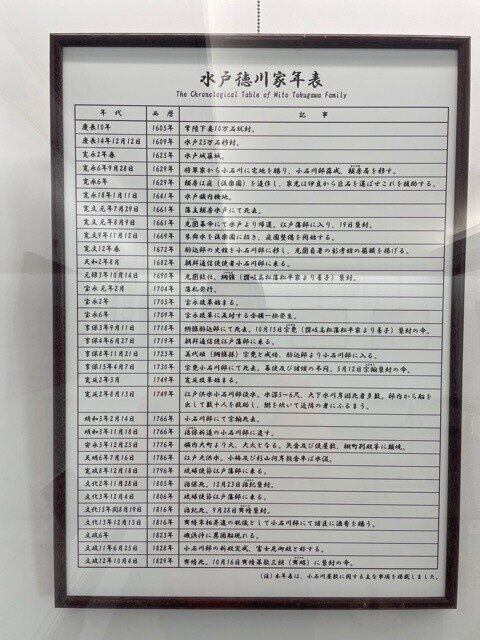 水戸徳川家年表
The Chronological Table of Mito Tokugawa Family
年代 西暦 記事
慶長10年 1605年 常陸下妻10万石拝封。
慶長14年12月12日 1609年 水戸25万石移封。
寛永2年春 1625年 水戸城築城。
寛永6年9月28日 1629年 将軍家から小石川に宅地を賜り、小石川邸落成、頼房居を移す。
寛永6年 1629年 頼房は庭(後楽園)を造作し、家光は伊豆から巨石を運ばせこれを援助する。
寛永18年1月11日 1641年 水戸領内検地。
寛文元年7月29日 1661年 藩主頼房水戸にて死去。
寛文元年8月9日 1661年 光圀幕命にて水戸より帰還。江戸藩邸に入り、19日襲封。
寛文9年11月12日 1669年 家綱水を後楽園に招き、庭園整備を開始する。
寛文12年春 1672年 駒込邸の史館を小石川邸に移し、光圀自書の彰考館の扁額を掲げる。
天和2年8月 1682年 朝鮮通信使使者小石川邸に来る。
元禄3年10月14日 1690年 光圀致仕、綱條(讃岐高松藩松平家より養子)襲封。
宝永元年2月 1704年 藩札発行。
宝永2年 1705年 宝永改革始まる。
宝永6年 1709年 宝永改革に反対する全領一揆発生。
享保3年9月11日 1718年 綱條駒込邸にて死去。10月15日宗堯(讃岐高松藩松平家より養子)襲封の命。
享保4年6月27日 1719年 朝鮮通信使江戸藩邸に来る。
享保8年11月21日 1723年 美代姫(綱條孫)宗堯と成婚、駒込邸より小石川邸に入る。
享保15年4月7日 1730年 宗堯小石川邸にて死去。幕使及び諸侯の弔問。5月12日宗翰襲封の命。
寛延2年3月 1749年 寛延改革始まる。
寛延2年8月13日 1749年 江戸洪水小石川邸浸水、水深5~6尺。大下水川岸溺死者多数。邸内から船を
出して数十人を救助し、粥を炊いて近隣の者にふるまう。
明和3年2月14日 1766年 小石川邸にて宗翰死去。
明和3年11月18日 1766年 治保新造の小石川邸に還る。
安永5年12月25日 1776年 領内大町より火、大火となる。矢倉及び徒屋敷、棚町別殿等に類焼。
天明6年7月16日 1786年 江戸大洪水。小梅及び杉山河岸殺倉半ば水浸。
寛政8年12月18日 1796年 琉球使節江戸藩邸に来る。
文化2年11月28日 1805年 治保死。12月23日治紀襲封。
文化3年12月4日 1806年 琉球使節江戸藩邸に来る。
文化13年閏8月19日 1816年 治紀死。9月28日斉脩襲封。
文化13年12月15日 1816年 斉脩家相昇進の祝儀として小石川邸にて諸臣に酒肴を賜う。
文政6年 1823年 磯浜沖に異国船現れる。
文政11年6月25日 1828年 小石川邸の新殿完成、富士見御殿と称する。
文政12年10月4日 1829年 斉脩死。10月16日斉脩養弟三郎(斉昭)に襲封の命。
(注)本年表は、小石川屋敷に関する主な事項を掲載しました。